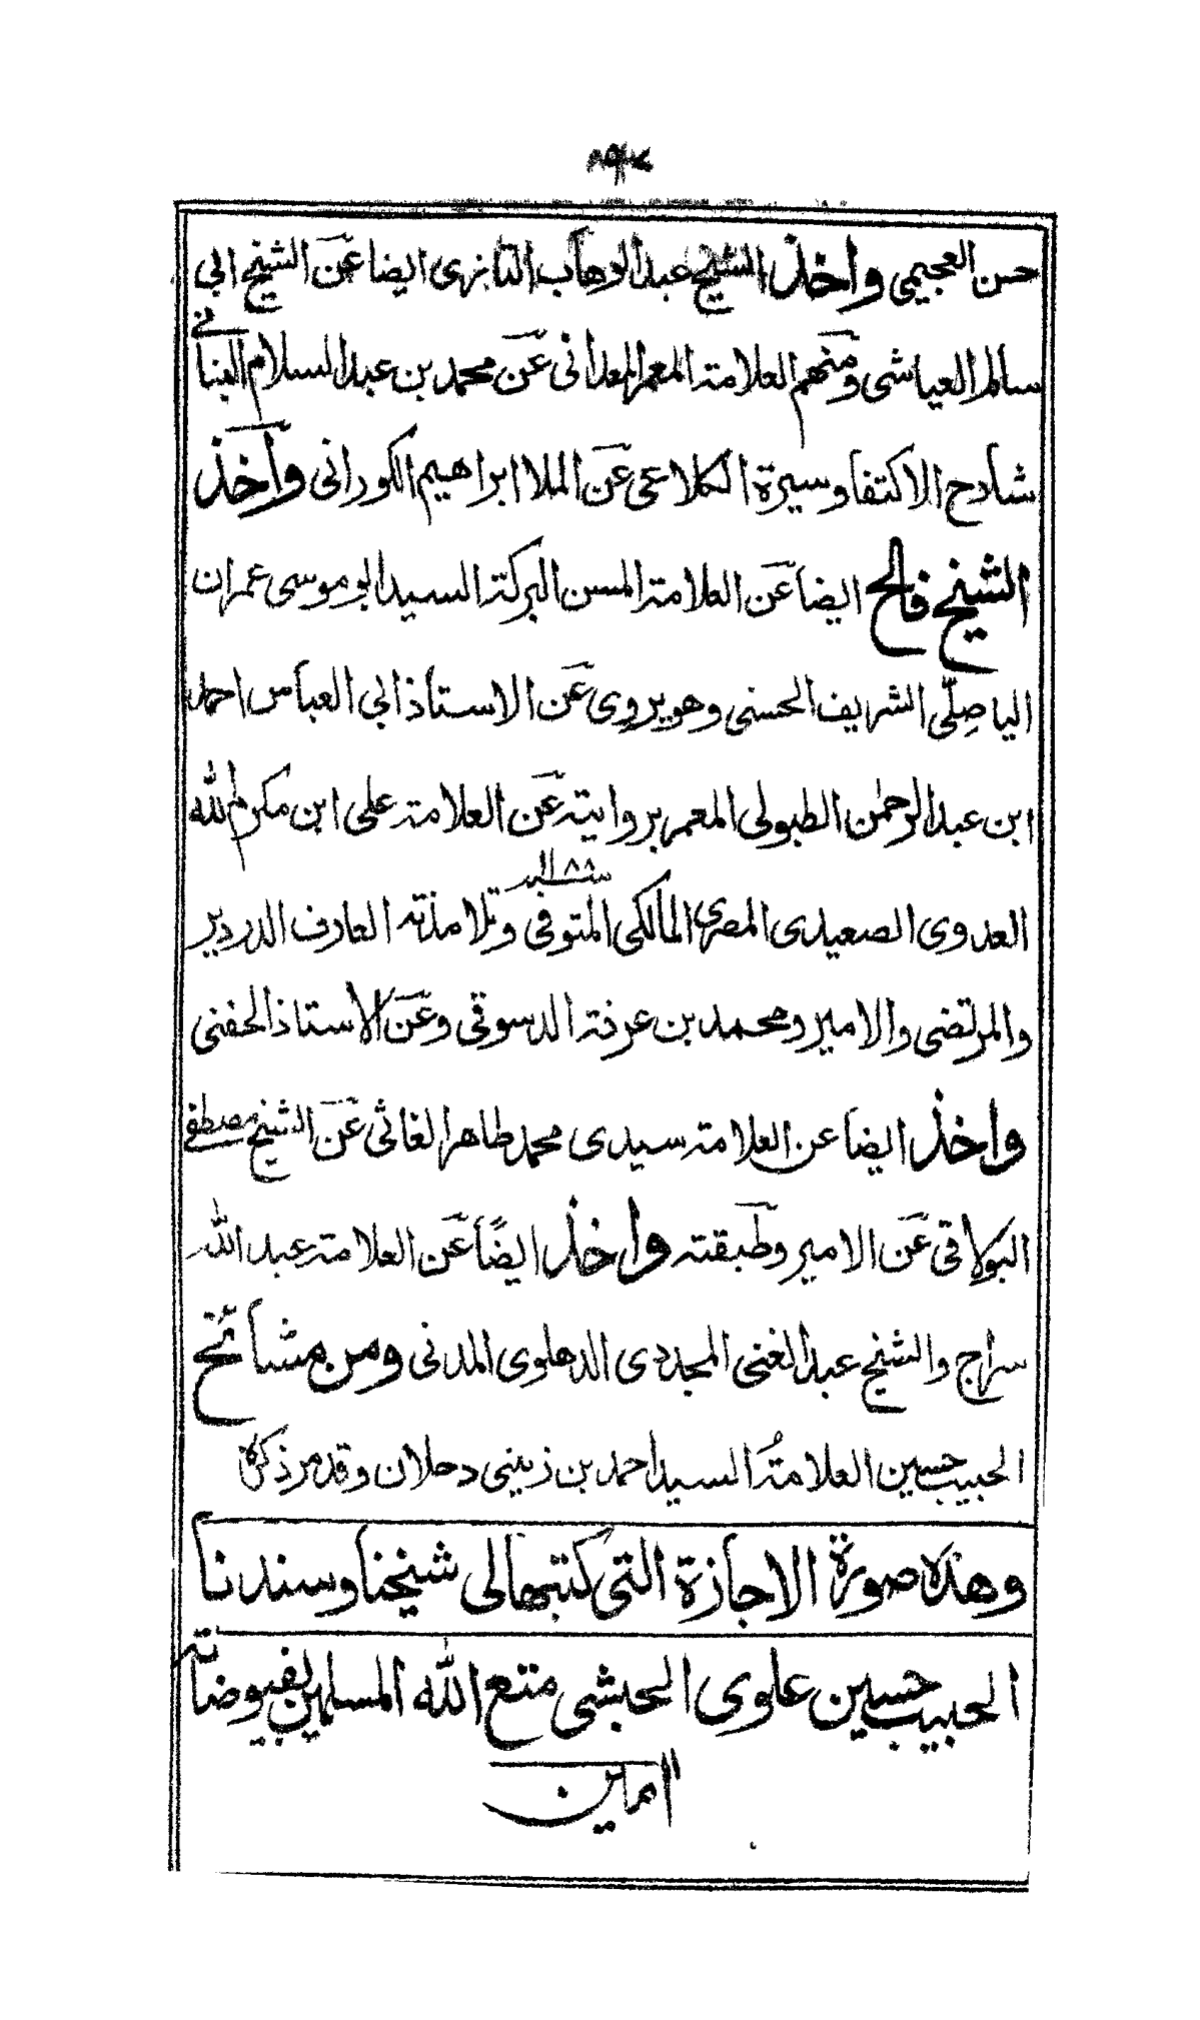 حسن العجيمي واخذ الشيخ عبد الوهاب التازى ايضا عن الشيخ ابي
سالم العياشى ومنهم العلامة المعمر المعدانى عن محمد بن عبد السلام البنانى
شارح الاكتفا وسيرة الكلاعى عن الملا ابراهيم الكورانى واخذ
الشيخ فالح ايضا عن العلامة المسن البركة السيد ابو موسى عمران
الياصِلّى الشريف الحسنى وهو يروى عن الاستاذ ابي العباس احمد
ابن عبد الرحمٰن الطبولى المعمر بروايته عن العلامة على ابن مكرم الله
العدوى الصعيدى المصرى المالكى المتوفى وتلامذته العارف الدردير
والمرتضى والامير ومحمد بن عرفة الدسوقى وعن الاستاذ الحفنى
واخذ ايضا عن العلامة سيدى محمد طاهر الغاثى عن الشيخ مصطفى
البولاقى عن الامير وطبقته واخذ ايضًا عن العلامة عبد الله
سراج والشيخ عبد الغنى المجددى الدهلوى المدنى ومن مشائخ
الحبيب حسين العلامةُ السيد احمد بن زينى دحلان وقد مر ذكره
وهذه صورة الاجازة التى كتبها لى شيخنا وسندنا
الحبيب حسين علوى الحبشى متع الله المسلمين بفيوضاته
اٰمين